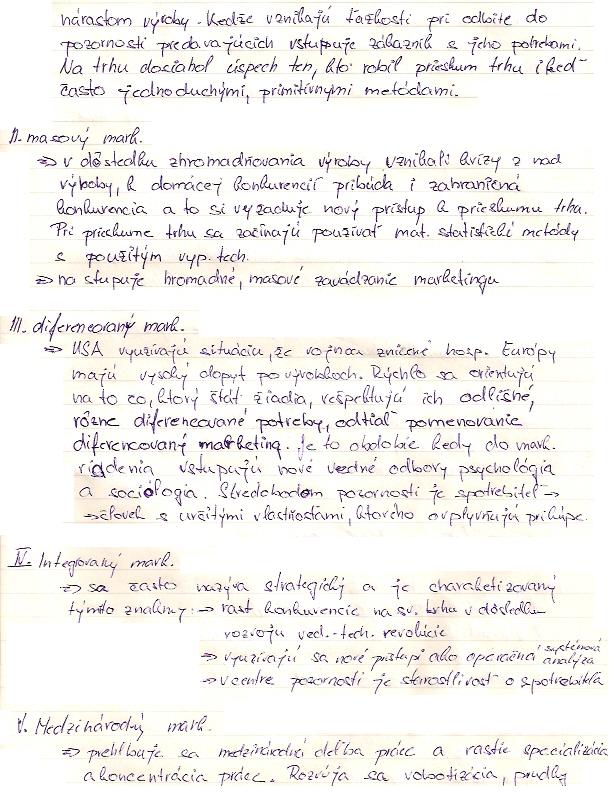 nárastom výroby. Kedže vznikajú ťažkosti pri odbite do
pozornosti predavajúcich vstupuje zákazník s jeho potrebami.
Na trhu dosiahol úspech ten, kto robil prieskum trhu i keď
často jednoduchými, primitívnymi metódami.
II. masový mark.
⇒ v dôsledku zhromadňovania výroby vznikali krízy z nad
výroby, k domácej konkurencií pribúda i zahraničná
konkurencia a to si vyžaduje nový prístup k prieskumu trhu.
Pri prieskume trhu sa začínajú používať mat. statistické metódy
s použitým vyp. tech.
⇒ na stupuje hromadné, masové zavádzanie marketingu
III. diferencovaný mark.
⇒ USA využívajú situáciu, že vojnou zničené hosp. Európy
majú vysoký dopyt po výrobkoch. Rýchlo sa orientujú
na to čo, ktorý štát žiadia, rešpektujú ich odlišné,
rôzne diferencované potreby, odtiaľ pomenovanie
diferencovaný marketing. Je to obdobie kedy do mark.
riadenia vstupujú nové vedné odbory psychológia
a sociológia. Stredobodom pozornosti je spotrebiteľ →
→ človek s určitými vlastnosťami, ktorého ovplyvňujú pri kúpe.
IV. Integrovaný mark.
⇒ sa často nazýva strategický a je charaketizovaný
týmito znakmi: → rast konkurencie na sv. trhu v dôsledku
rozvoju ved.-tech. revolúcie
⇒ využívajú sa nové prístupi ako operačná systémová analýza
⇒ v centre pozornosti je starostlivosť o spotrebiteľa
V. Medzinárodný mark.
⇒ prehlbuje sa medzinárodná deľba práce a rastie specializácia
a koncentrácia práce. Rozvíja sa robotizácia, prudký